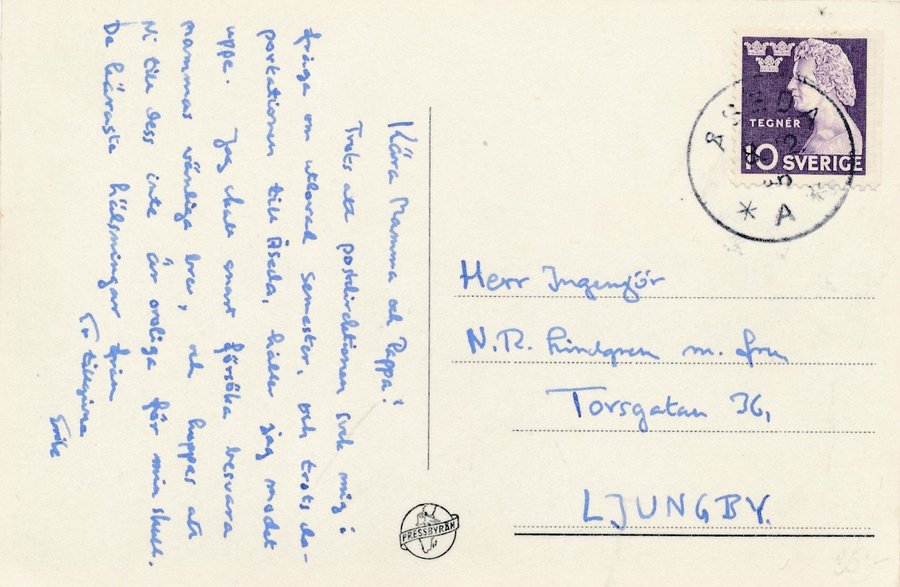 Kära Mamma och Pappa!
Trots att postdirektionen svek mig i
fråga om utlovad semester, och trots de-
porteringen till Åseda, håller jag modet
uppe. Jag skall snart försöka besvara
mammas vänliga brev, och hoppas att
Ni till dess inte är oroliga för min skull.
De käraste hälsningar från
Er tillgivne
TEGNÉR
10 SVERIGE
ÅSEDA
* A *
Herr Ingenjör
N.R. Lindgren m. fru
Torsgatan 36,
LJUNGBY.
PRESSBYRÅN